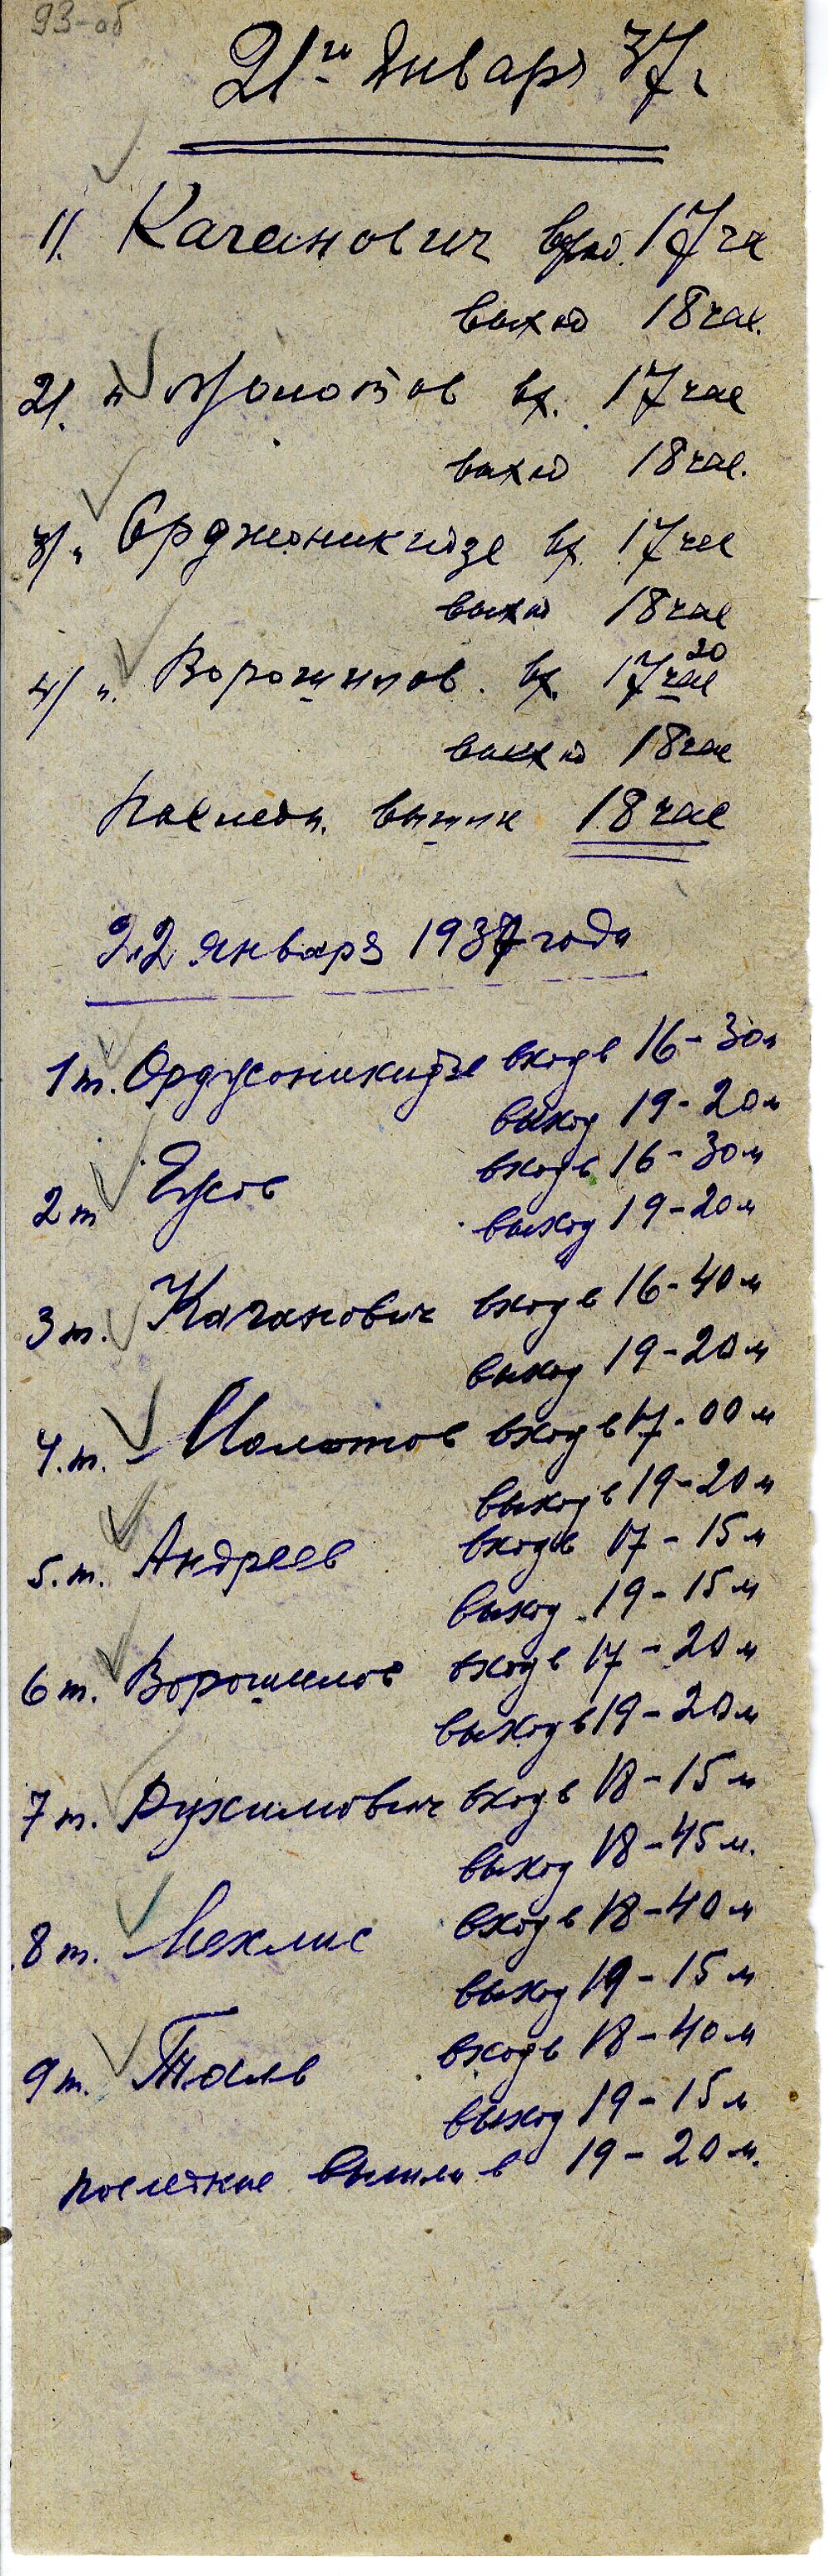 93-об
21го Января 37г
1/. Каганович вход. 17 ча
выход 18 час.
2/. " Молотов вх. 17 час
выход 18 час.
3/ " Орджоникидзе вх. 17 час
выход 18 час
4/ ". Ворошилов. вх. 17 час 20
выход 18 час
Последн. вышли 18 час
22 января 1937 года
1 т. Орджоникидзе вход в 16-30 м
выход 19-20 м
2 т Ежов вход в 16-30 м
выход 19-20 м
3 т. Каганович вход в 16-40 м
выход 19-20 м
4. т. Молотов вход в 17-00 м
выход в 19-20 м
5. т. Андреев вход в 17-15 м
выход 19-15 м
6 т. Ворошилов вход в 17-20 м
выход в 19-20 м
7 т. Рухимович вход в 18-15 м
выход 18-45 м.
8 т. Мехлис вход в 18-40 м
выход 19-15 м
9 т. Таль вход в 18-40 м
выход 19-15 м
последние вышли в 19-20 м.